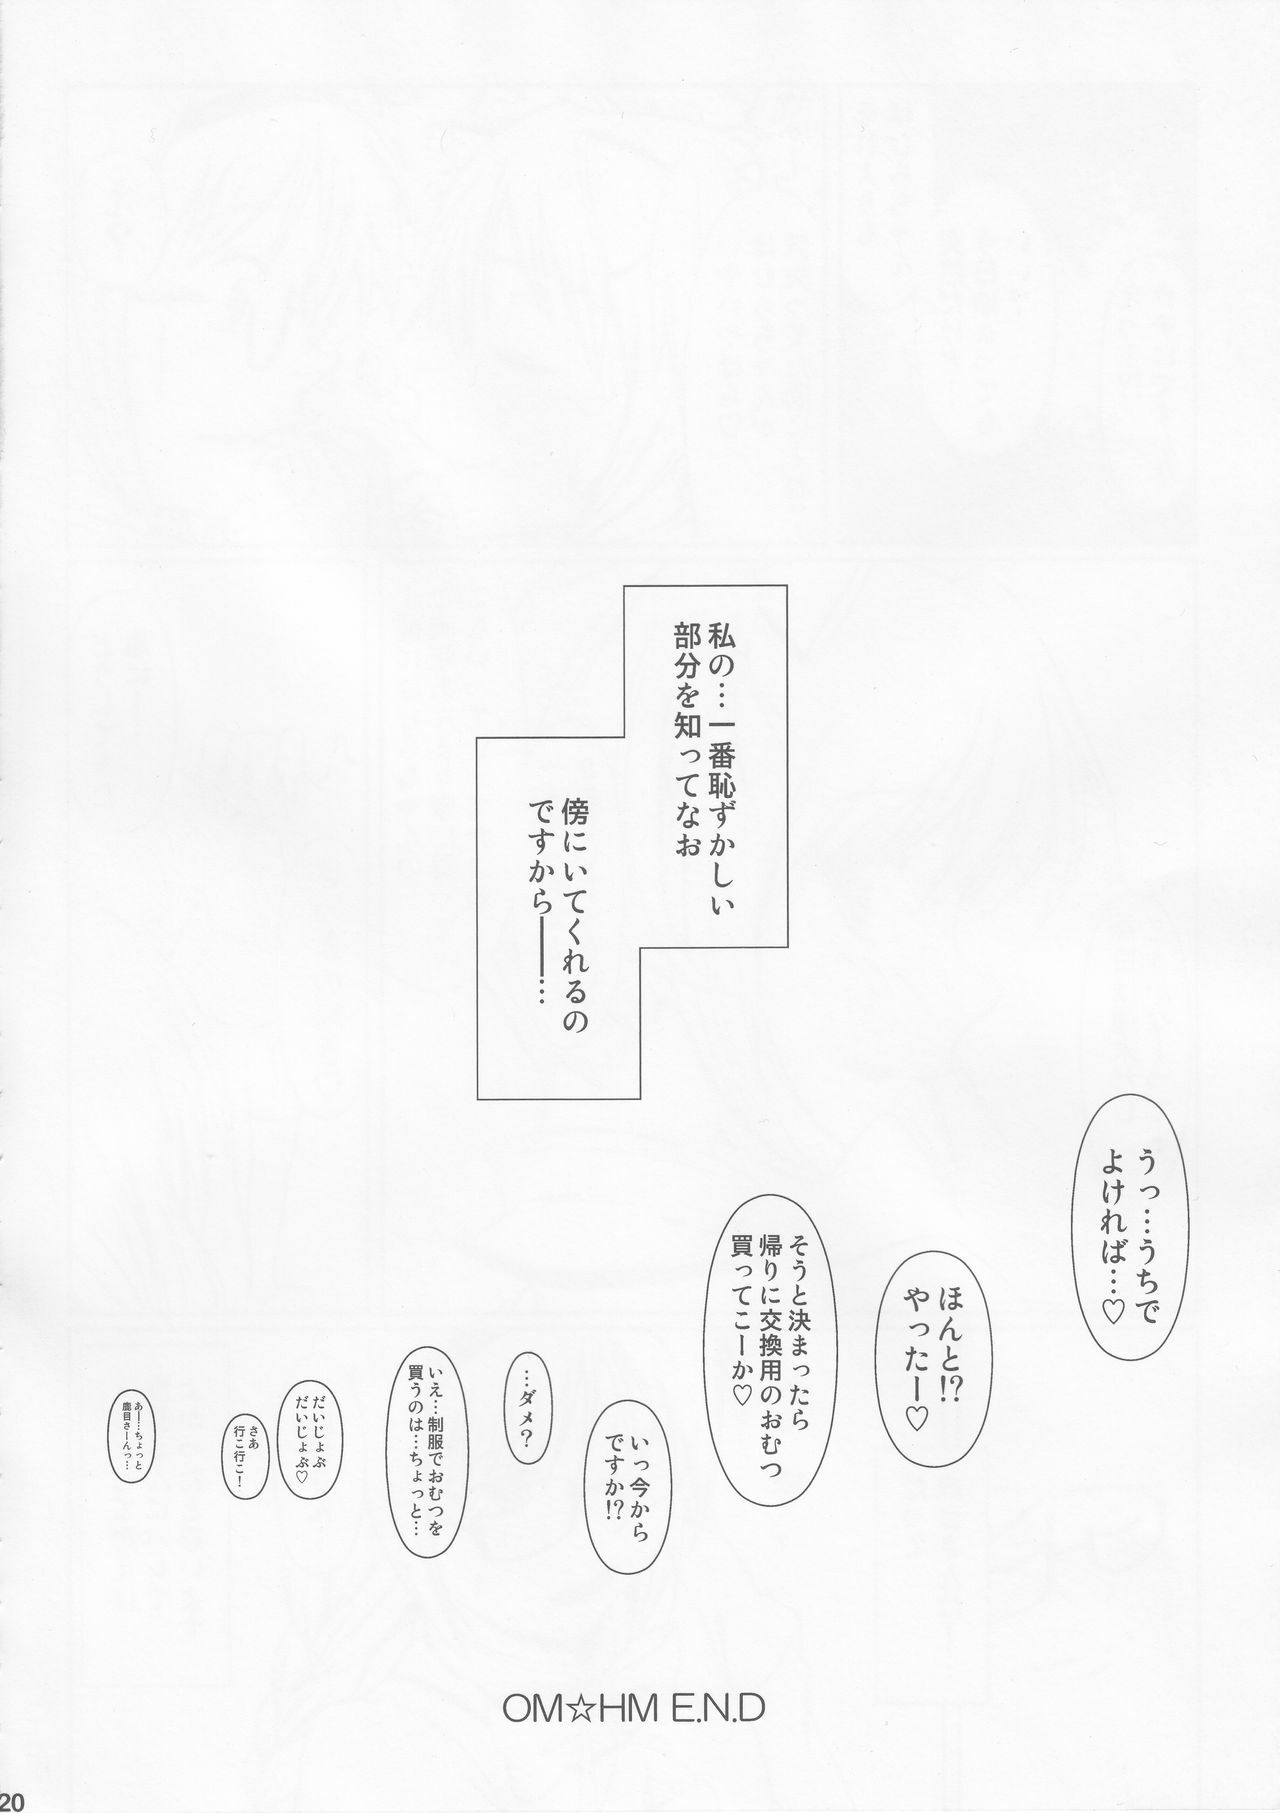 私の…一番恥ずかしい
部分を知ってなお
傍にいてくれるの
ですから――…
うっ…うちで
よければ…♡
ほんと!?
やったー♡
そうと決まったら
帰りに交換用のおむつ
買ってこーか♡
いっ今から
ですか!?
…ダメ?
いえ…制服でおむつを
買うのは…ちょっと…
だいじょぶ
だいじょぶ♡
さあ
行こ行こ!
あ――…ちょっと
鹿目さーんっ…
OM☆HM E.N.D
20